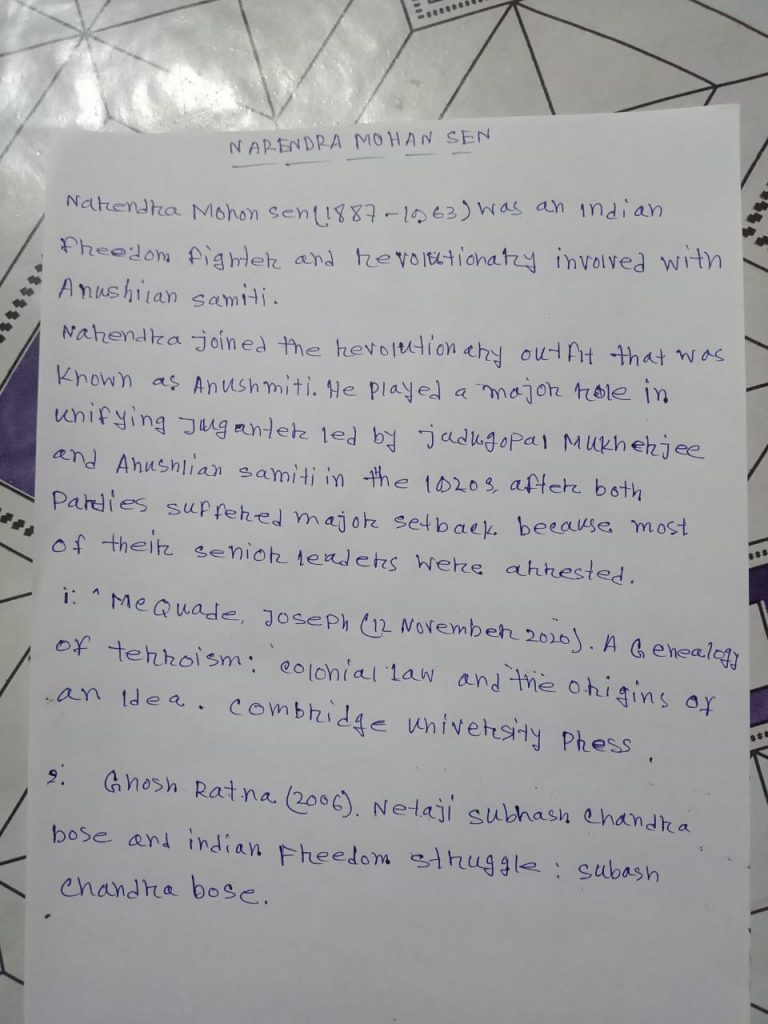 NARENDRA MOHAN SEN
Narendra Mohon sen (1887-1963) was an indian
freedom fighter and revolutionary involved with
Anushilan samiti.
Narendra joined the revolutionary outfit that was
known as Anushmiti. He played a major role in
unifying Juganter led by jadugopal Mukherjee
and Anushlian samiti in the 1920s, after both
Parties suffered major setback because most
of their senior leaders were arrested.
1: ^ McQuade, Joseph (12 November 2020). A Genealogy
of terroism: colonial law and the origins of
an Idea. Combridge university Press.
2: Ghosh Ratna (2006). Netaji subhash chandra
bose and indian Freedom struggle: subash
chandra bose.